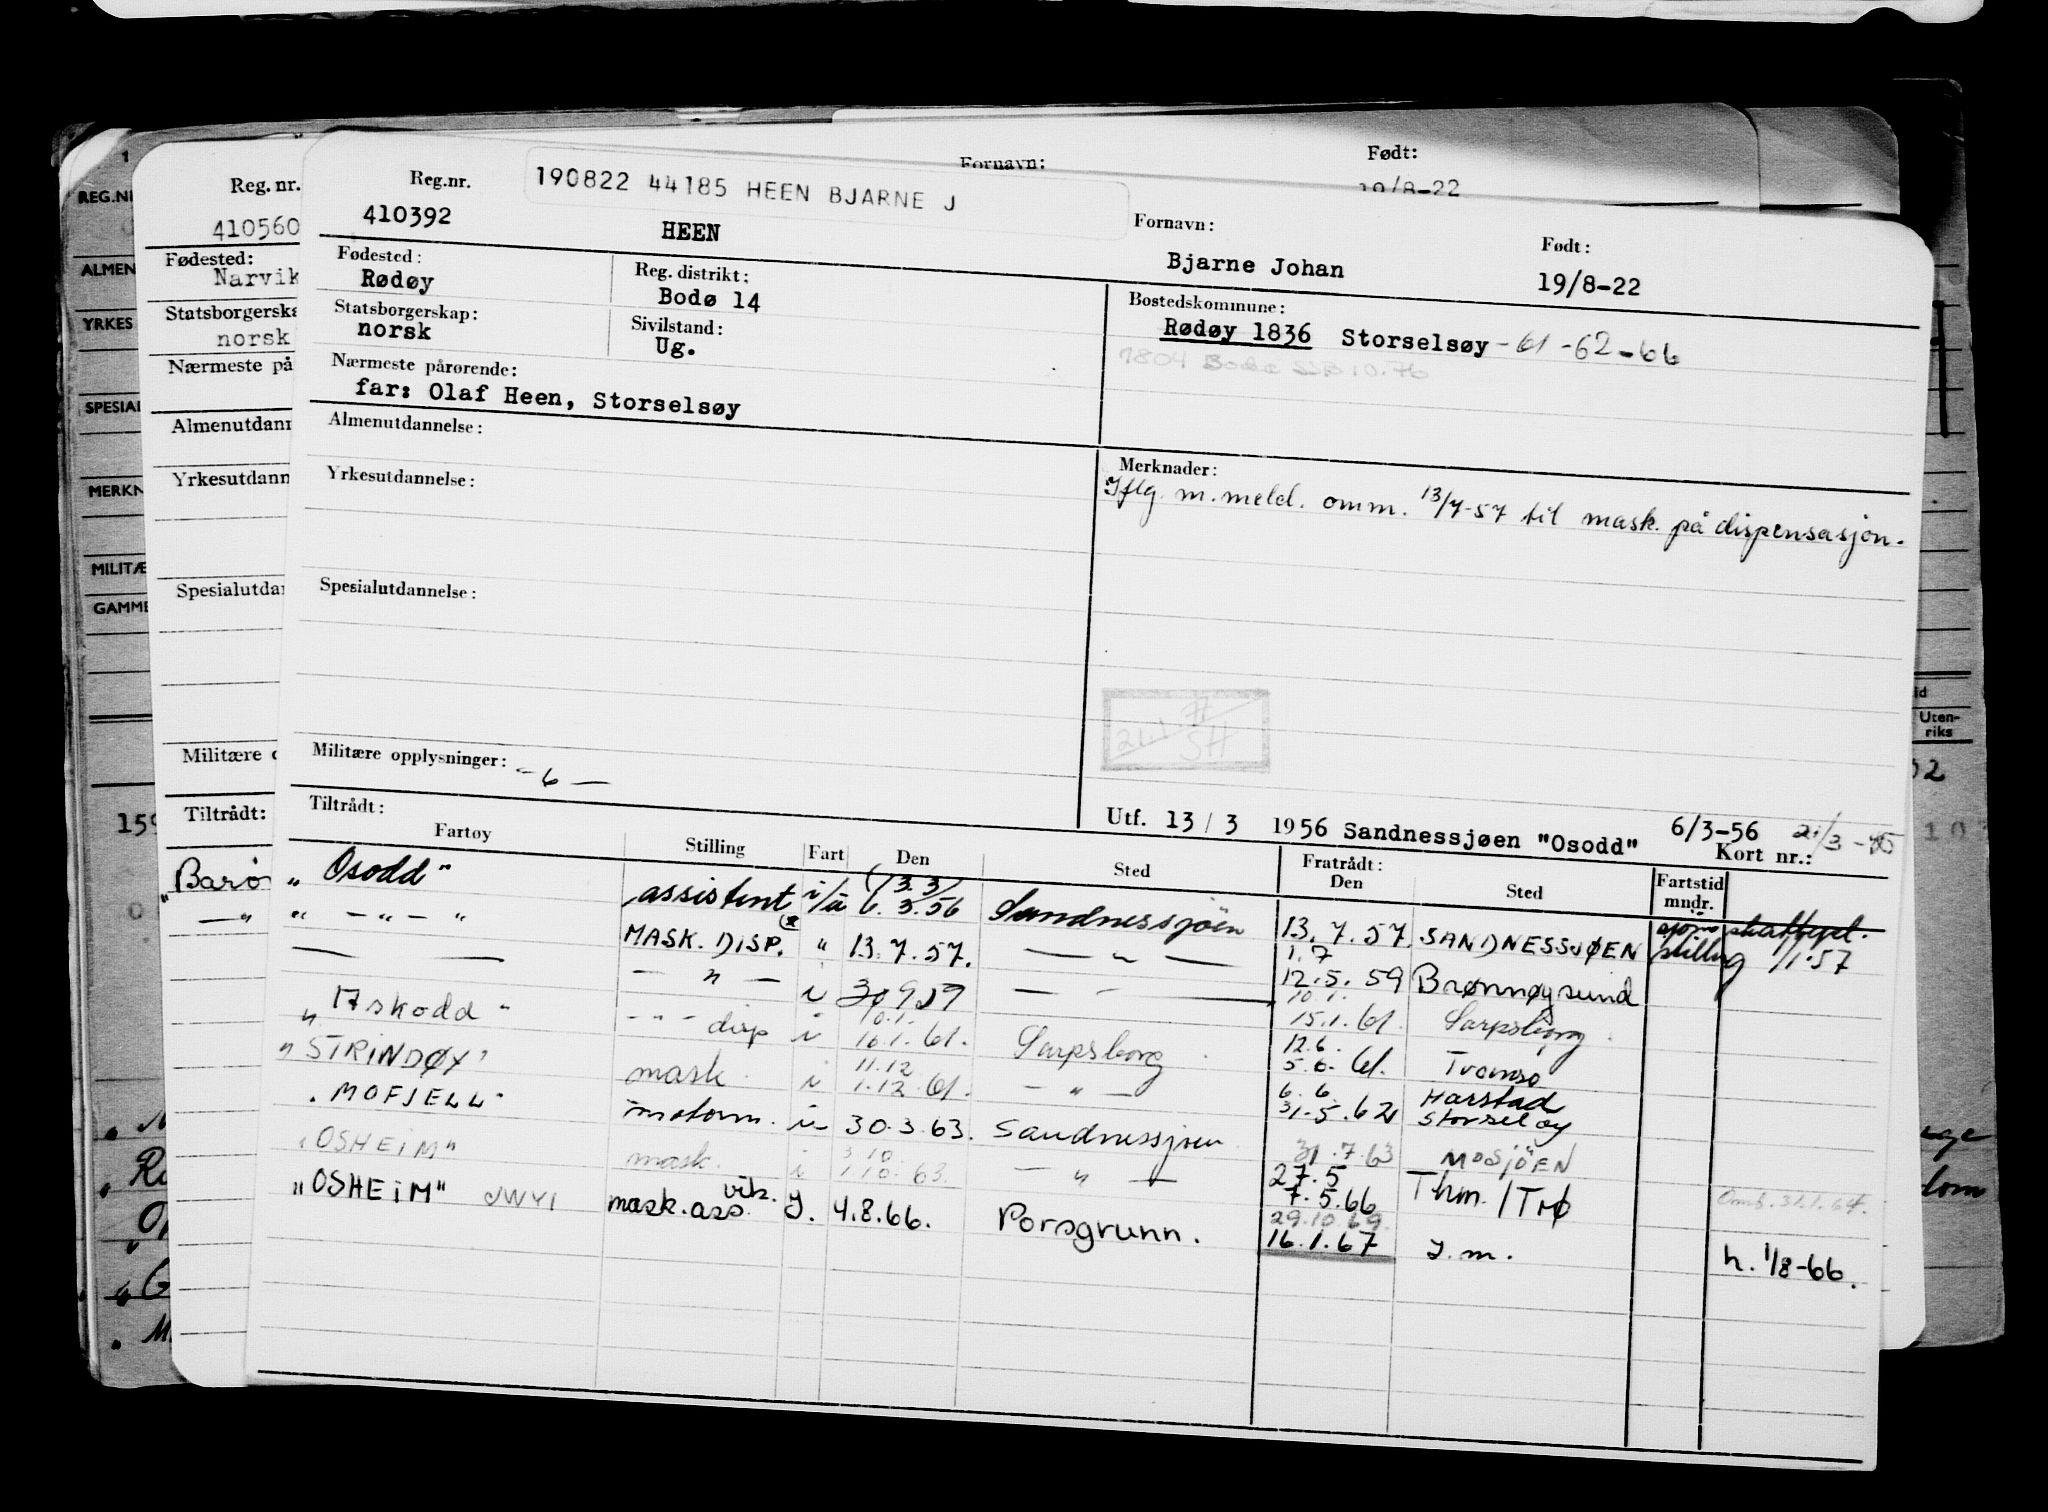 Fornavn: Født:
19/8-22
Reg.nr.
410560
Fødested:
Narvik
norsk
Tiltrådt:
Reg.nr. 190822 44185 HEEN BJARNE J
410392 HEEN
Fornavn: Født:
Bjarne Johan 19/8-22
Fødested: Reg. distrikt:
Rødøy Bodø 14
Statsborgerskap: Sivilstand:
norsk Ug.
Bostedskommune:
Rødøy 1836 Storselsøy - 61 - 62 - 66
Nærmeste pårørende:
far: Olaf Heen, Storselsøy
Almenutdannelse:
Yrkesutdannelse:
Merknader:
Iflg. m. meld. omm. 13/7-57 til mask. på dispensasjon.
Spesialutdannelse:
Militære opplysninger: - 6 -
Utf. 13/3 1956 Sandnessjøen "Osodd" 6/3-56
Kort nr.:
Tiltrådt: Fratrådt:
Fartøy Stilling Fart Den Sted Den Sted Fartstid mndr.
"Osodd" assistent i/u 13.3 6.3.56 Sandnessjöen 13.7.57 SANDNESSJØEN
" - " - " MASK. DISP. " 13.7.57. - " - 1.7 12.5.59 Brønnøysund
- " - i - " - 10.1. 15.1.61. Sarpsborg
- " - disp i 10.1. 16.1.61. Sarpsborg 12.6. 5.6.61. Tromsø
"STRINDØY" mask. i 11.12 1.12.61. - " - 6.6. 31.5.62 Harstad Storseløy
"MOFJELL" motorm. 30.3.63. Sandnessjøen 31.7.63 MOSJÖEN
"OSHEIM" mask. i 3.10 1.10.63. - " - 27.5 7.5.66 Thm./TrØ Omb. 31.1.64.
"OSHEIM" JWYI mask. ass. vik. I. 4.8.66. Porsgrunn. 29.10.69. 16.1.67 I.m. h. 1/8-66.